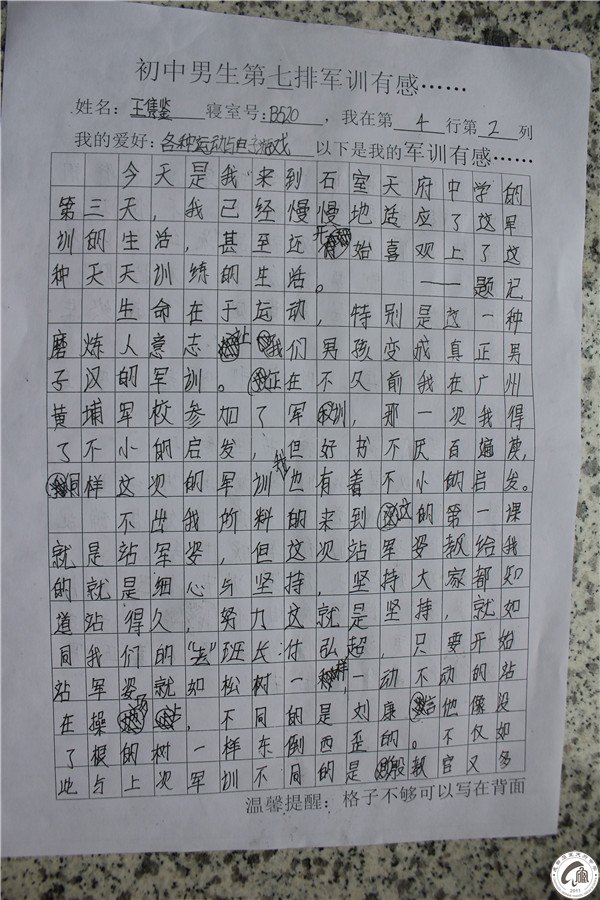 初中男生第七排军训有感……
姓名：王隽鉴 寝室号：B520，我在第4行第2列
我的爱好：各种运动与电子游戏 以下是我的军训有感……
今天是我来到石室天府中学的
第三天，我已经慢慢地适应了这军
训的生活，甚至还开始喜观上了这
种天天训练的生活。——题记
生命在于运动，特别是这一种
磨炼人意志上我们男孩变成真正男
子汉的军训。在不久前我在广州
黄埔军校参加了军训，那一次我得
了不小的启发，但好书不厌百遍读，
同样这次的军训我也有着不小的启发。
不出我所料的来到这的第一课
就是站军姿，但这次站军姿教给我
的就是细心与坚持，坚持大家都知
道站得久，努力这就是坚持，就如
同我们的“去”班长付弘超，只要开始
站军姿就如松树一样，一动不动的站
在操场，不同的是刘康他像没
了根的树一样东倒西歪的。不仅如
此与上次军训不同的是教官又多
温馨提醒：格子不够可以写在背面
2011